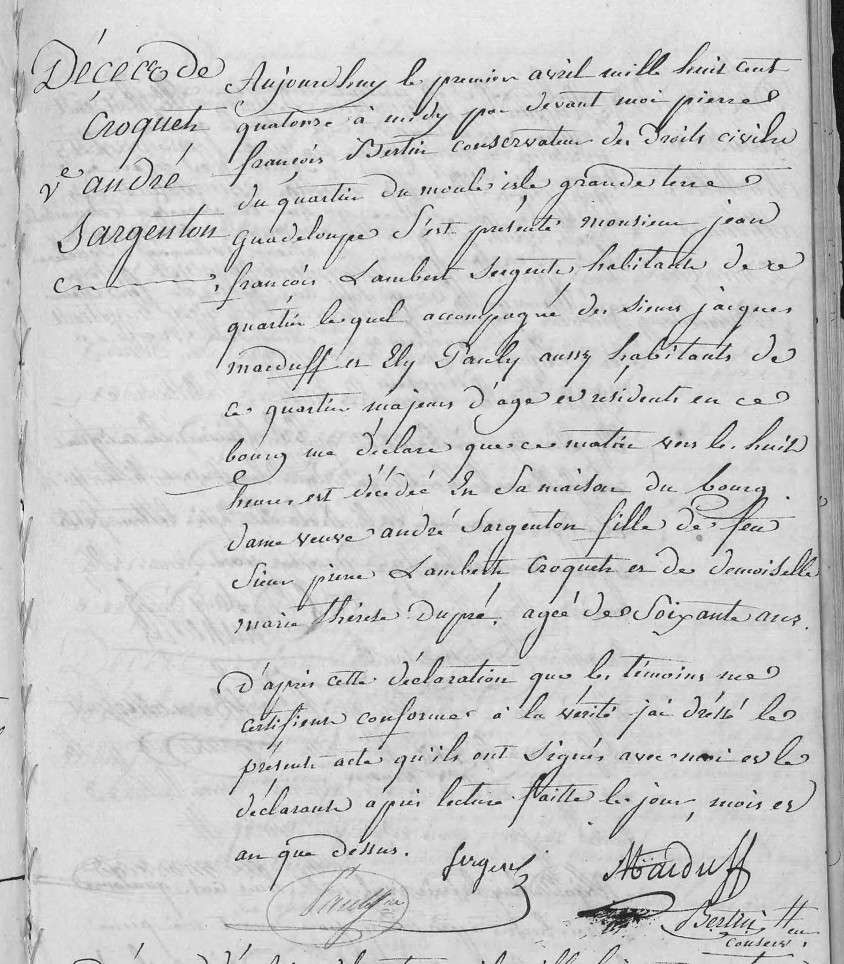 Décès de
Croquet
Ve andré
Sargenton
Aujourdhuy le premier avril mille huit cent
quatorse à midy par devant moi pierre
françois Bertin conservateur des Droits civils
du quartier du moule isle grande terre
Guadeloupe S'est présenté monsieur jean
françois Lambert Sergent habitant de ce
quartier lequel accompagné des sieurs jacques
macduff et Ely Pauly aussy habitants de
ce quartier majeurs d'age et résidents en ce
bourg me déclare que ce matin vers les huit
heures est décédé En Sa maison du bourg
dame veuve andré Sargenton fille de feu
Sieur pierre Lambert Croquet et de demoiselle
marie thérese Dupré, ageé de Soixante ans.
D'après cette déclaration que les témoins me
certifient conforme à la vérité j'ai dréssé le
présent acte qu'ils ont Signés avec moi et le
déclarant après lecture faitte les jour, mois et
an que dessus.
Sergent
Macduff
Bertin
conserv.